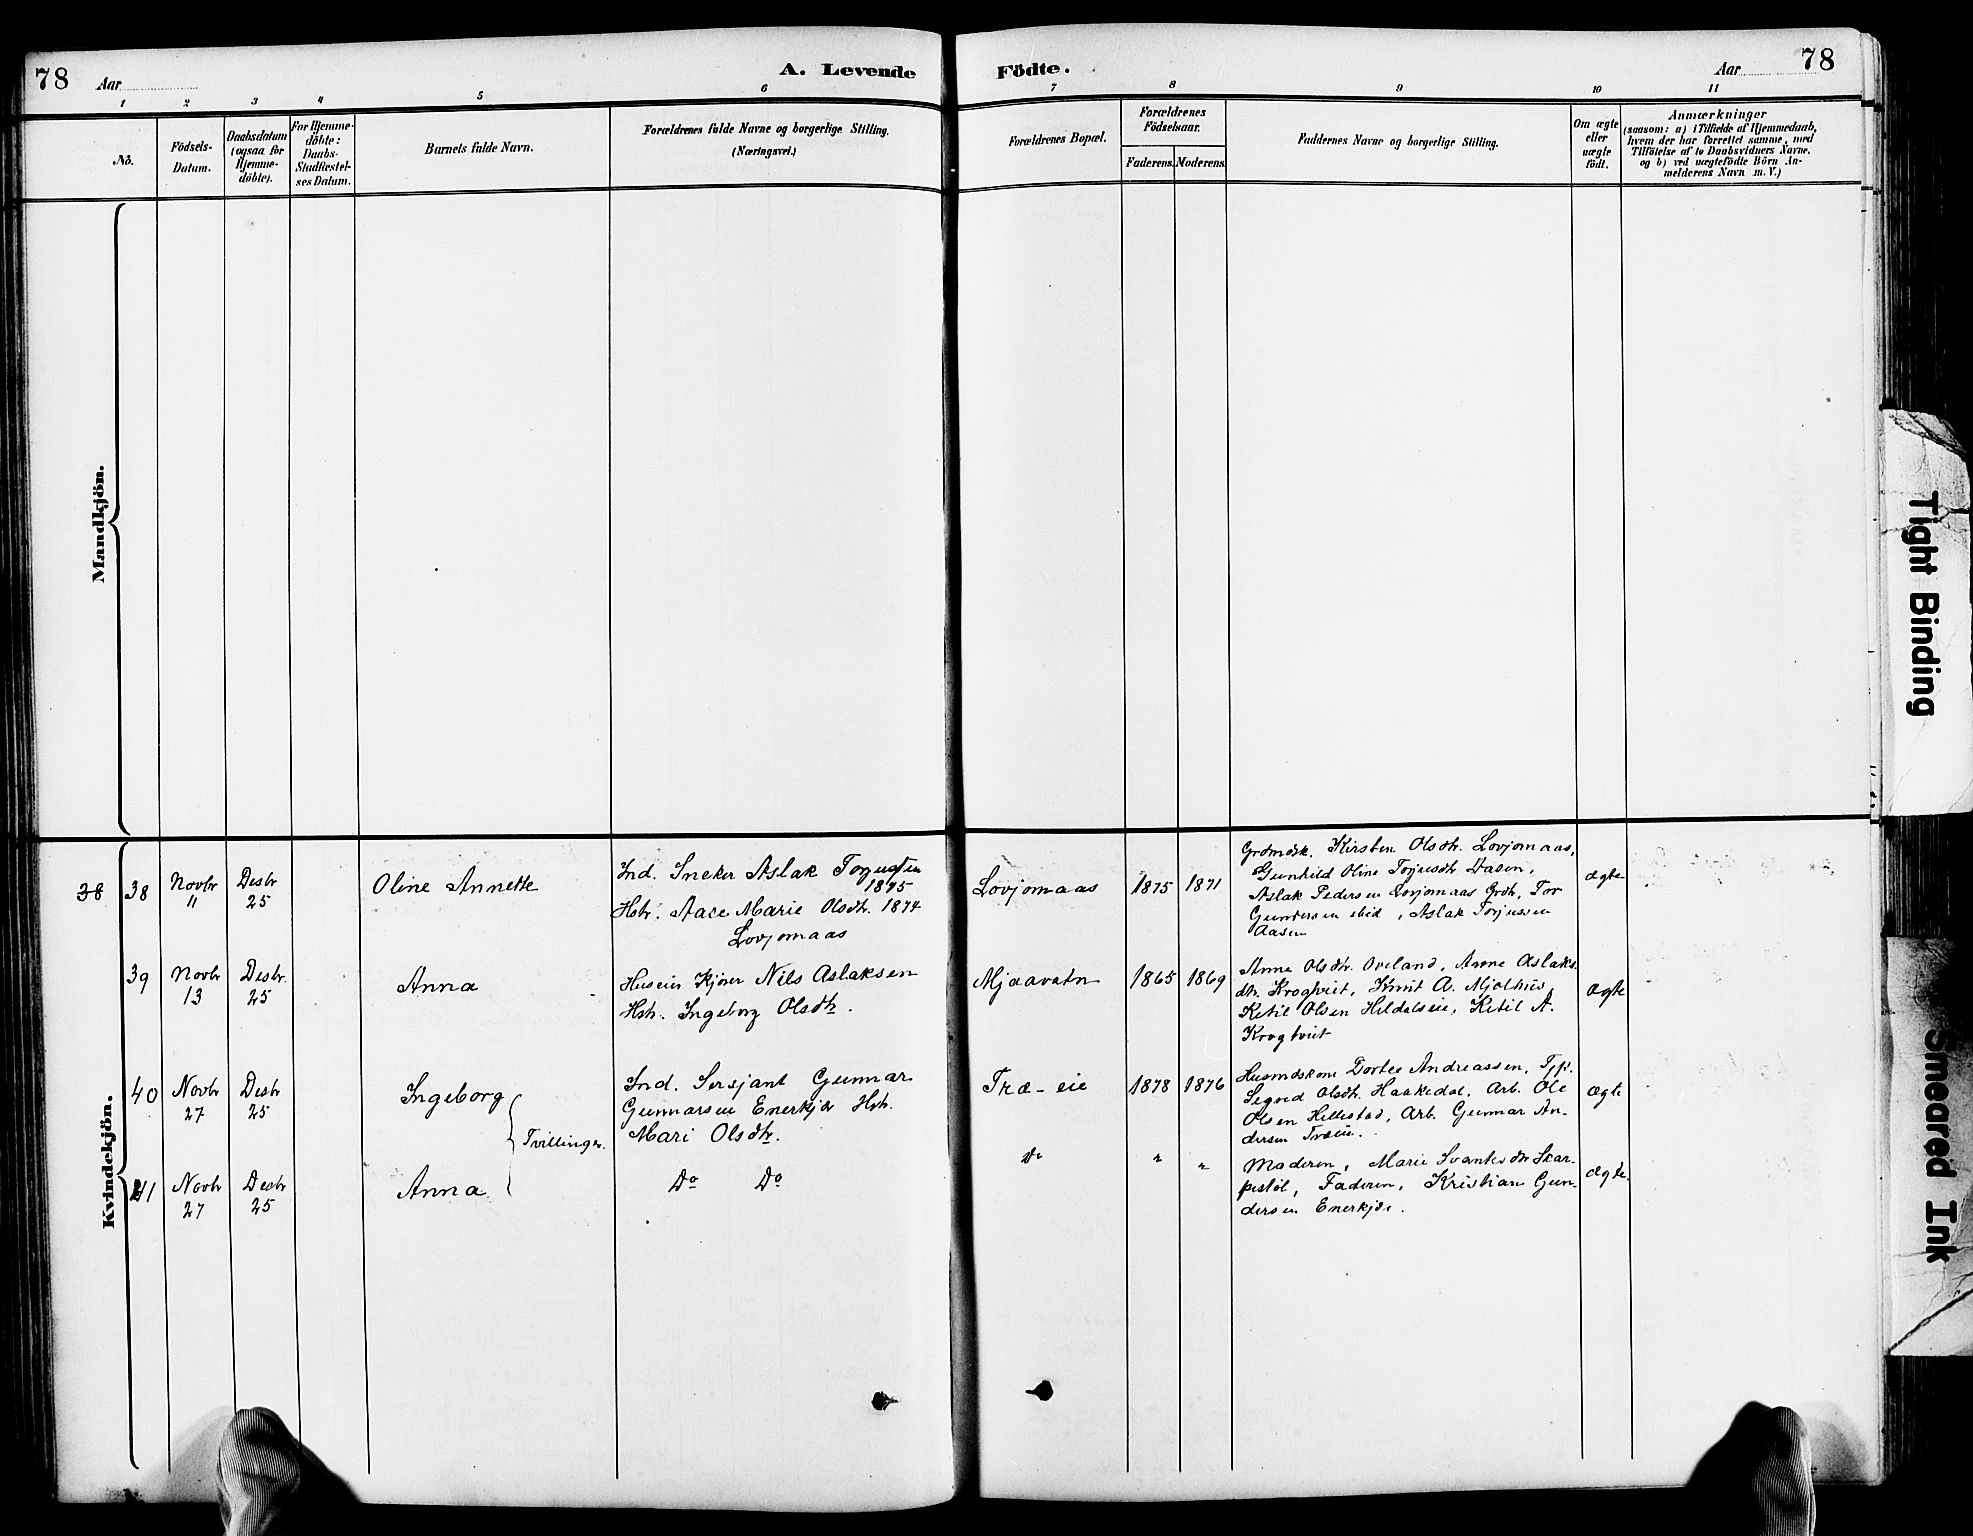 78
Aar
A. Levende
Födte.
Aar
78
1 2 3 4 5 6 7 8 9 10 11
No.
Födsels-
Datum.
Daabsdatum
(ogsaa for
Hjemme-
döbte).
For Hjemme-
döbte:
Daabs-
Stadfæstel-
ses Datum.
Barnets fulde Navn.
Forældrenes fulde Navne og borgerlige Stilling.
(Næringsvei.)
Forældrenes Bopæl.
Forældrenes
Födselsaar.
Faderens. Moderens.
Faddernes Navne og borgerlige Stilling.
Om ægte
eller
uægte
födt.
Anmærkninger
(saasom: a) i Tilfælde af Hjemmedaab,
hvem der har forrettet samme, med
Tilföielse af to Daabsvidners Navne.
og b) ved uægtefödte Börn An-
melderens Navn m. V.)
Mandkjön.
Kvindekjön.
38 38
Novbr
11
Desbr
25
Oline Annette
Ind. Sneker Aslak Torjusen
1875
Hstr. Aase Marie Olsdtr. 1874
Lovjomaas
Lovjomaas
1875 1871
Grdmdsk. Kirsten Olsdtr. Lovjomaas,
Gunhild Oline Torjusdtr Aasen,
Aslak Pedersen Lovjomaas Grdb, Tor
Gundersen ibid, Aslak Torjussen
Aasen
ægte
39
Novbr
13
Desbr.
25
Anna
Huseier Kjører Nils Aslaksen
Hstr. Ingeborg Olsdtr.
Mjaavatn
1865 1869
Anne Olsdtr. Oveland, Anne Aslaks-
dtr. Krogtveit, Knut A. Mjølhus,
Ketil Olsen Hildalseie, Ketil A.
Krogtveit
Ægte
40
Novbr
27
Desbr
25
Ingeborg
Tvillinger.
Ind. Sersjant Gunnar
Gunnarsen Enerkjær Hstr.
Mari Olsdtr.
Træ-eie
1878 1876
Husmdskone Dortea Andreassen,
Signed Olsdtr. Haakedal, Arb. Ole
Olsen Hillestad, Arb. Gunnar An-
dersen Træeie.
Ægte
41
Novbr
27
Desbr
25
Anna
Do Do
Do " "
Moderen, Marie Svantesdtr Skar-
pestøl, Faderen, Kristian Gun-
dersen Enerkjær.
Ægte.
Tight Binding
Smeared Ink